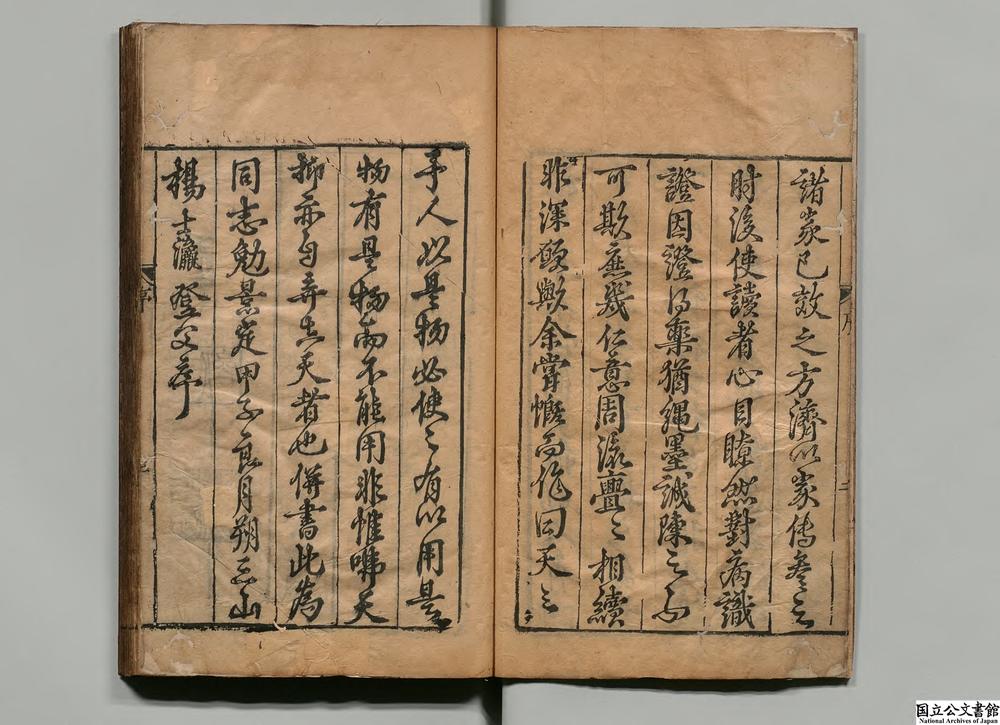 諸家已效之方濟以家傳參之
肘後使讀者心目瞭然對病識
證因證得藥猶繩墨誠陳之不
可欺庶幾仁意周流亹〻相續
非深願歟余嘗慨而作曰天之
予人以是物必使之有以用是
物有是物而不能用非惟咈天
抑亦自棄其天者也併書此為
同志勉景定甲子良月朔三山
楊士瀛登父序
国立公文書館
National Archives of Japan